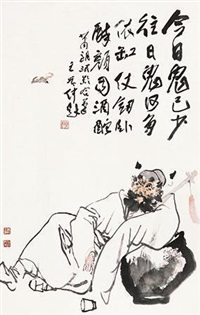 今日鬼已少
往日鬼何多
依缸仗釰卧
醉顏因酒酡